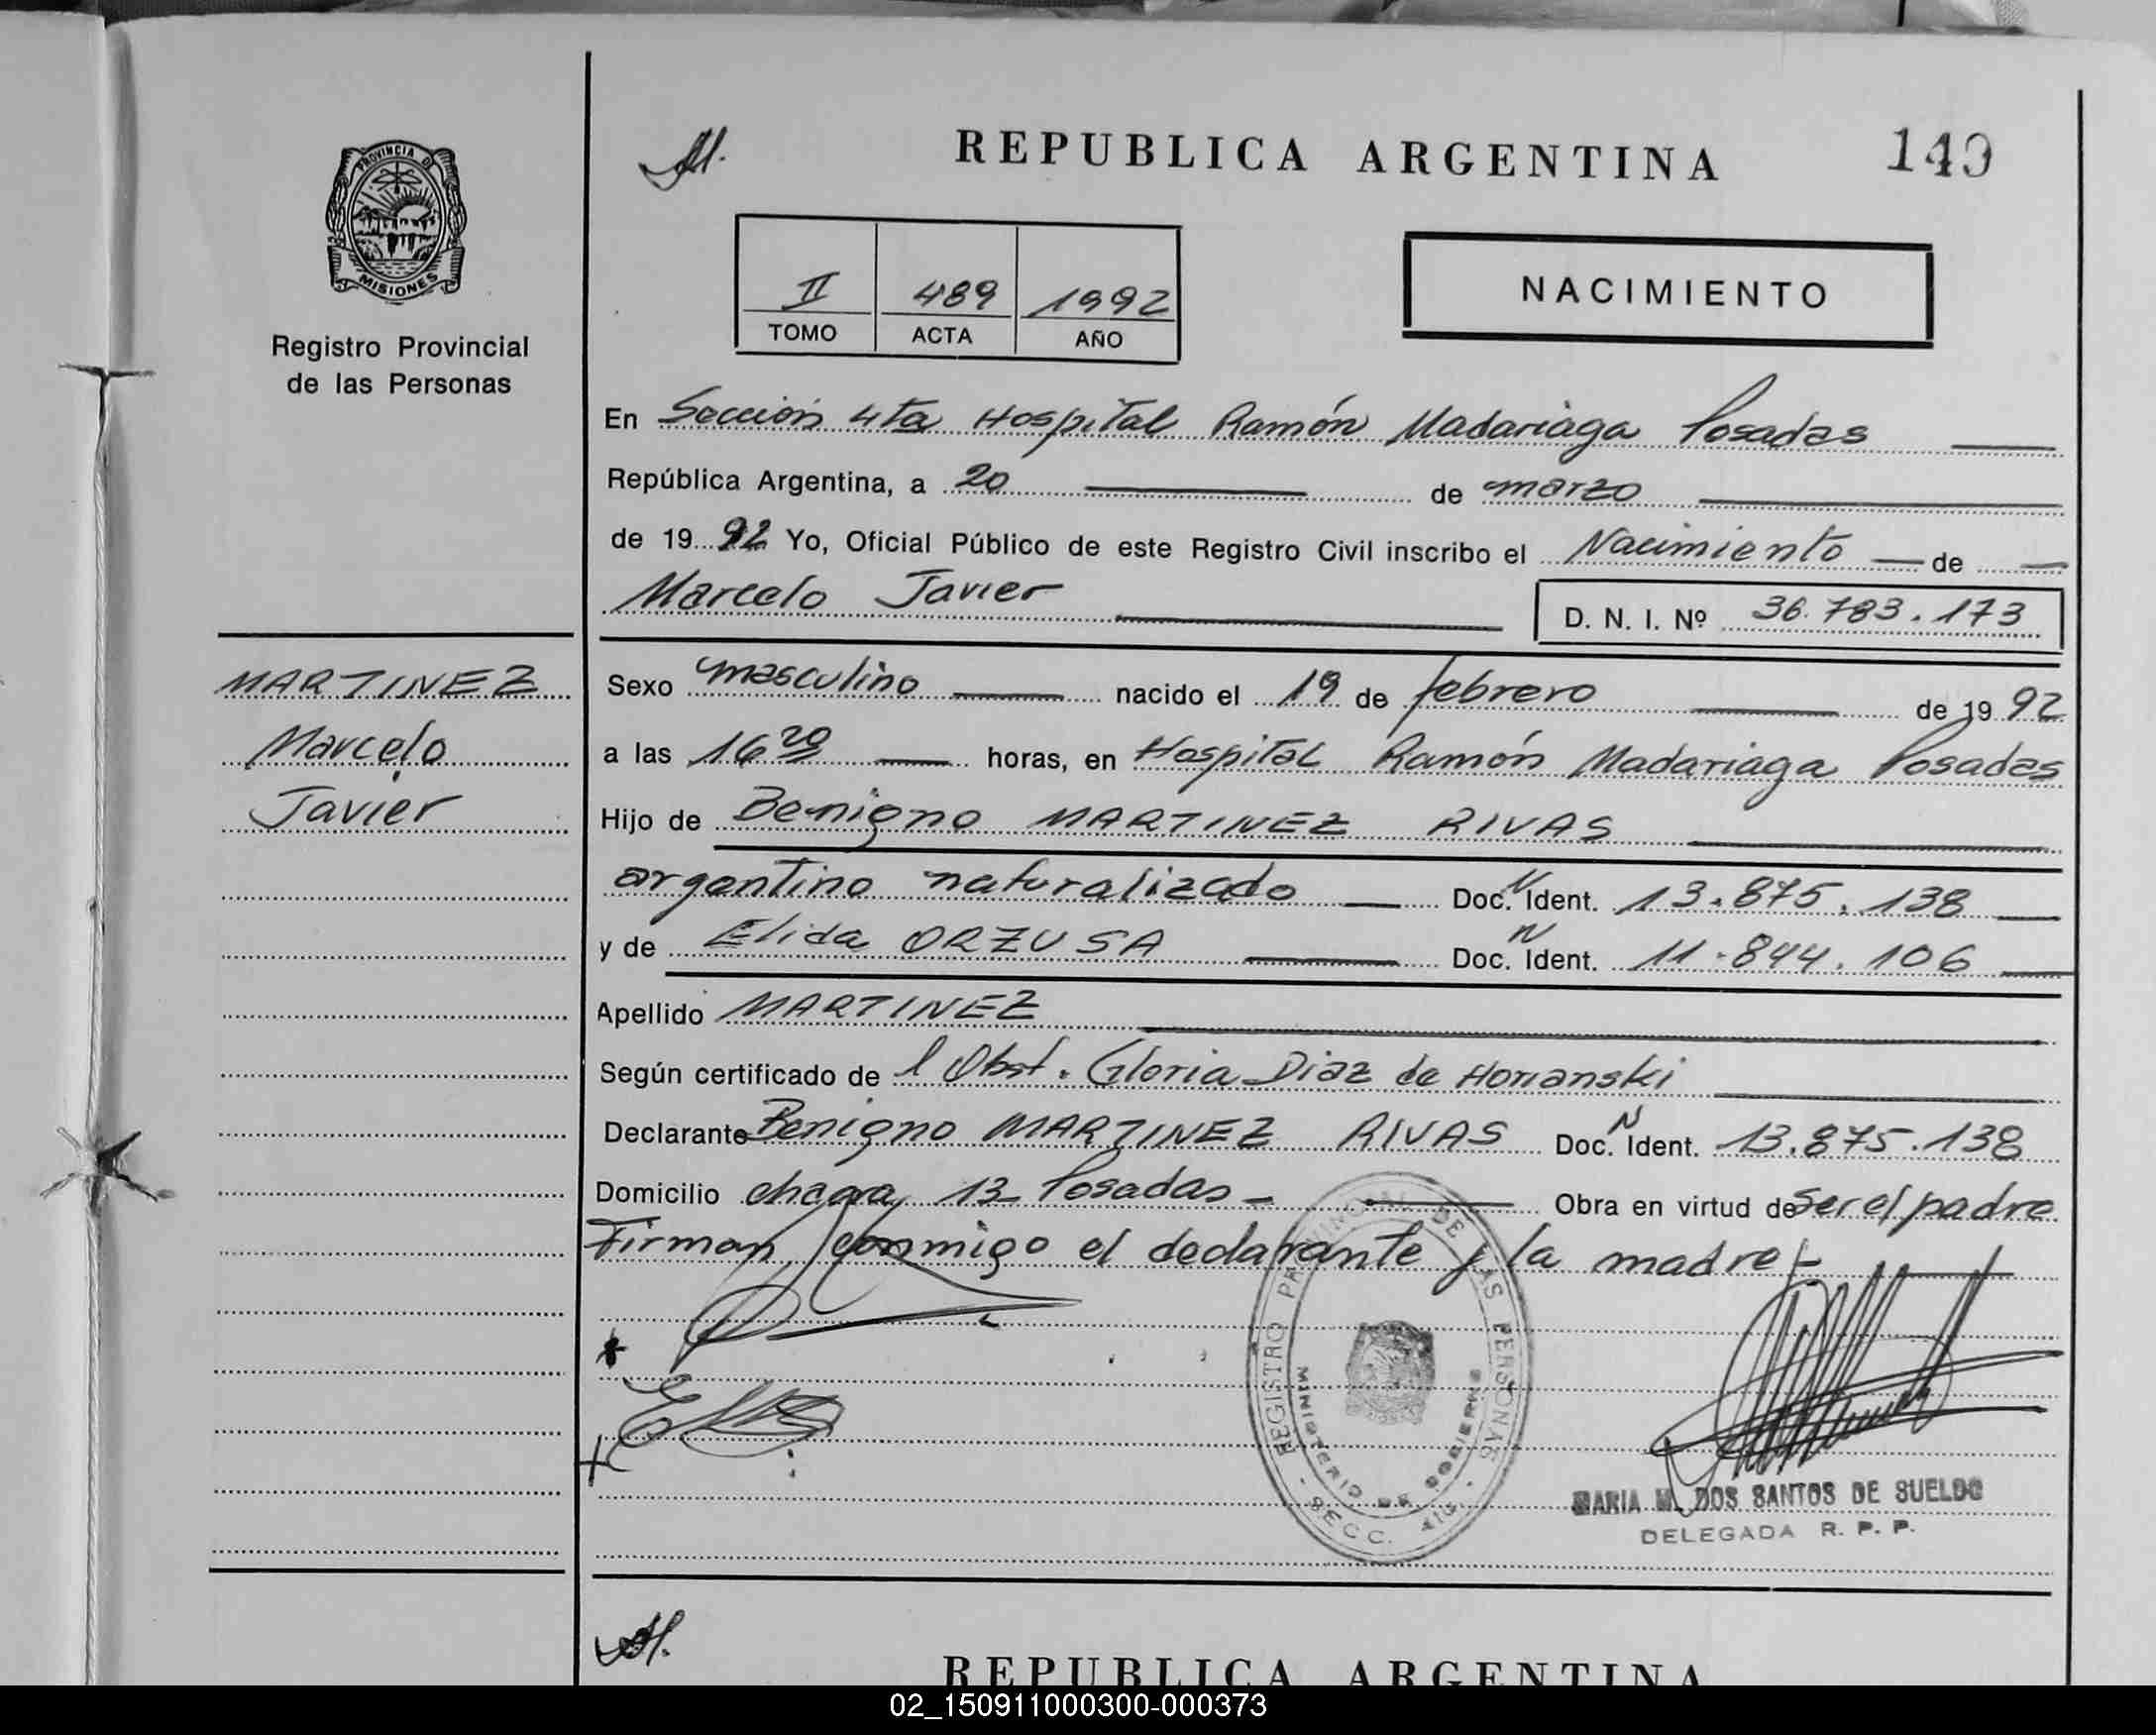 REPUBLICA ARGENTINA
149
PROVINCIA DE
MISIONES
Registro Provincial
de las Personas
II 489 1992
TOMO ACTA AÑO
NACIMIENTO
En Sección 4ta Hospital Ramón Madariaga Posadas
República Argentina, a 20 de marzo
de 1992 Yo, Oficial Público de este Registro Civil inscribo el Nacimiento de
Marcelo Javier
D. N. I. Nº 36.783.173
MARTINEZ
Marcelo
Javier
Sexo masculino nacido el 19 de febrero de 1992
a las 16 20 horas, en Hospital Ramón Madariaga Posadas
Hijo de Benigno MARTINEZ RIVAS
argentino naturalizado Doc. N Ident. 13.875.138
y de Elida ORZUSA Doc. N Ident. 11.844.106
Apellido MARTINEZ
Según certificado de l Obst. Gloria Diaz de
Declarante Benigno MARTINEZ RIVAS Doc. N Ident. 13.875.138
Domicilio chacra 13 Posadas - Obra en virtud de ser el padre
Firman conmigo el declarante y la madre -
REGISTRO PROVINCIAL DE LAS PERSONAS
MINISTERIO DE GOBIERNO
SECC. 4ta
MARIA M. DOS SANTOS DE SUELDO
DELEGADA R. P. P.
REPUBLICA ARGENTINA
02_150911000300-000373